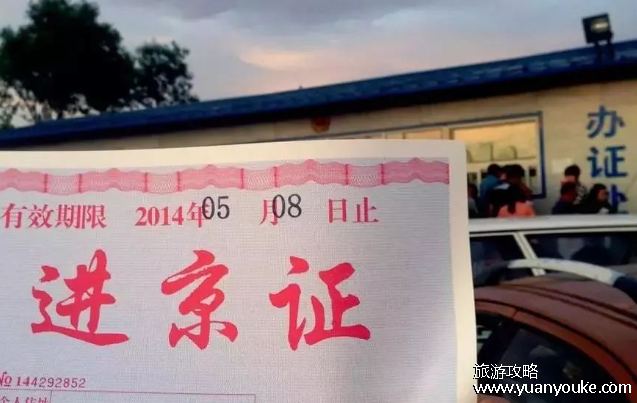 有效期限 2014年05月08日止
进京证
№ 144292852
办证处
旅游攻略
www.yuanyouke.com